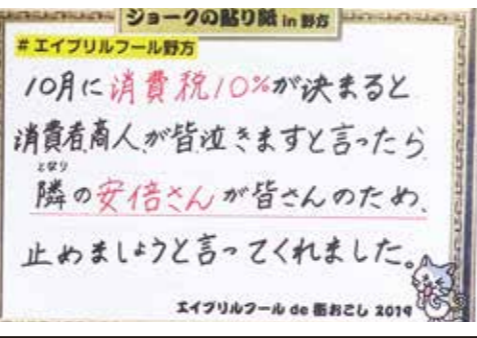 ジョークの貼り紙 in 野方
#エイプリルフール野方
10月に消費税10%が決まると
消費者,商人が皆泣きますと言ったら
となり
隣の安倍さんが皆さんのため、
止めましょうと言ってくれました。
エイプリルフール de 街おこし 2019